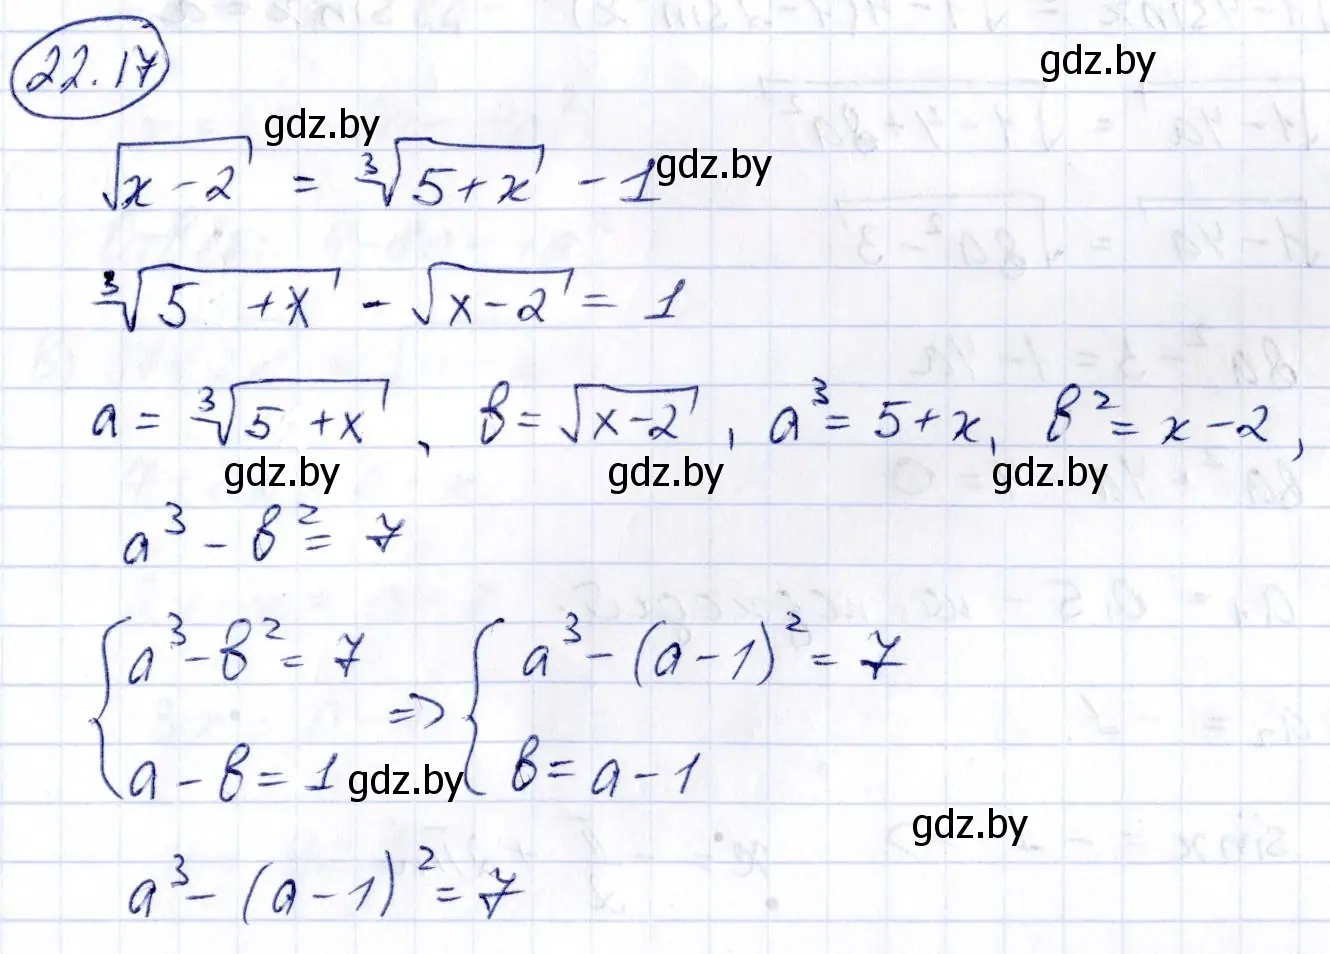 22.17
gdz.by
gdz.by
√(x-2) = ∛(5+x) - 1
gdz.by
∛(5+x) - √(x-2) = 1
a = ∛(5+x), в = √(x-2), a³ = 5+x, в² = x-2,
gdz.by gdz.by gdz.by
a³ - в² = 7
{ a³ - в² = 7 => { a³ - (a-1)² = 7
a - в = 1 в = a - 1
gdz.by
gdz.by
a³ - (a-1)² = 7